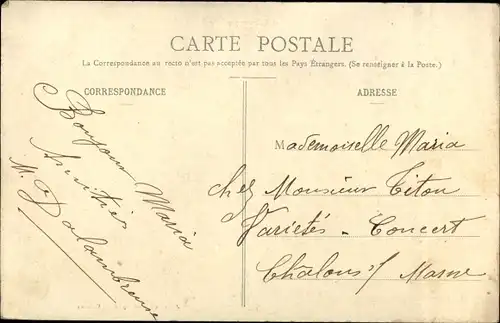 CARTE POSTALE
La Correspondance au recto n'est pas acceptée par tous les Pays Étrangers. (Se renseigner à la Poste.)
CORRESPONDANCE
Bonjour Maria
Amitiés
M.
ADRESSE
Mademoiselle Maria
chez Monsieur Titon
Varietés - Concert
Châlons s/ Marne